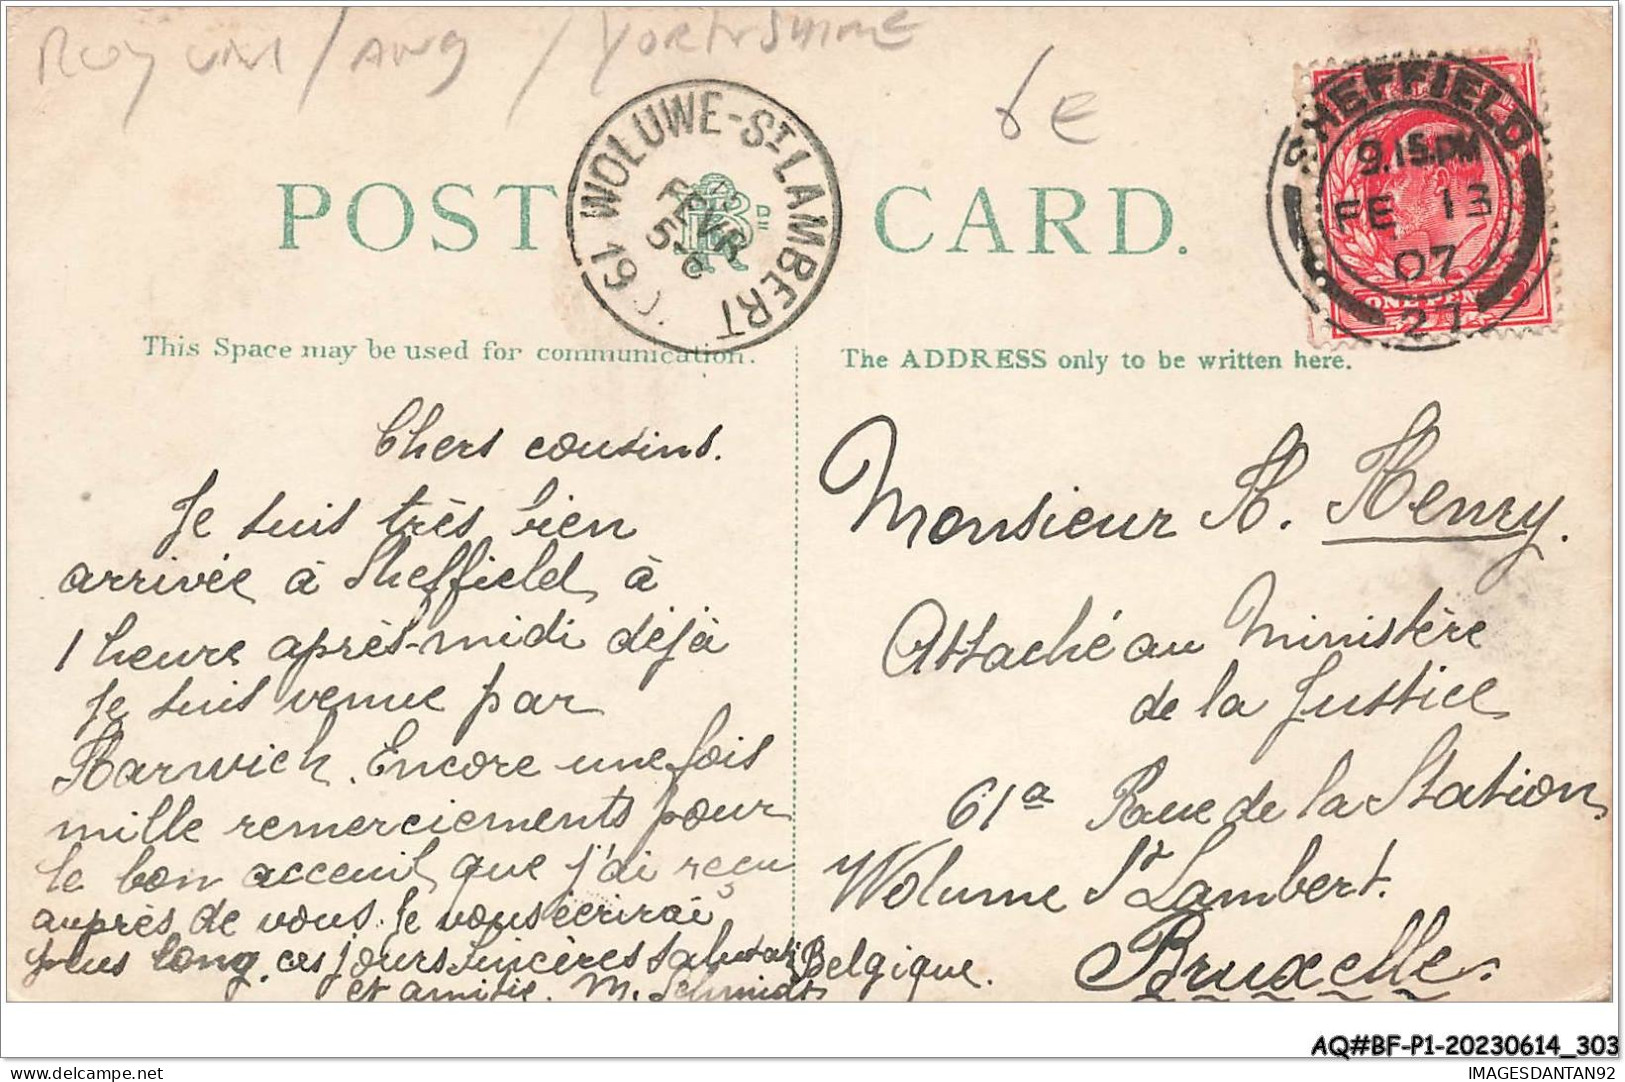 Roy uni / Ang / Yorkshire
6E
POST CARD.
WOLUWE-ST LAMBERT
SHEFFIELD
9.15 PM
FE 13
07
21
ONE PENNY
This Space may be used for communication.
The ADDRESS only to be written here.
Chers cousins.
Je suis très bien
arrivée à Sheffield à
1 heure après-midi déjà
Je suis venue par
Harwich. Encore une fois
mille remerciements pour
le bon acceuil que j'ai reçu
auprès de vous. Je vous écrirai
plus long. ces jours Sincères salutat.
et amitié. M. Schmidt
Monsieur H. Henry.
Attaché au Ministère
de la Justice
61a Rue de la Station
Wolume St Lambert.
Bruxelle.
Belgique.
AQ#BF-P1-20230614_303
IMAGESDANTAN92